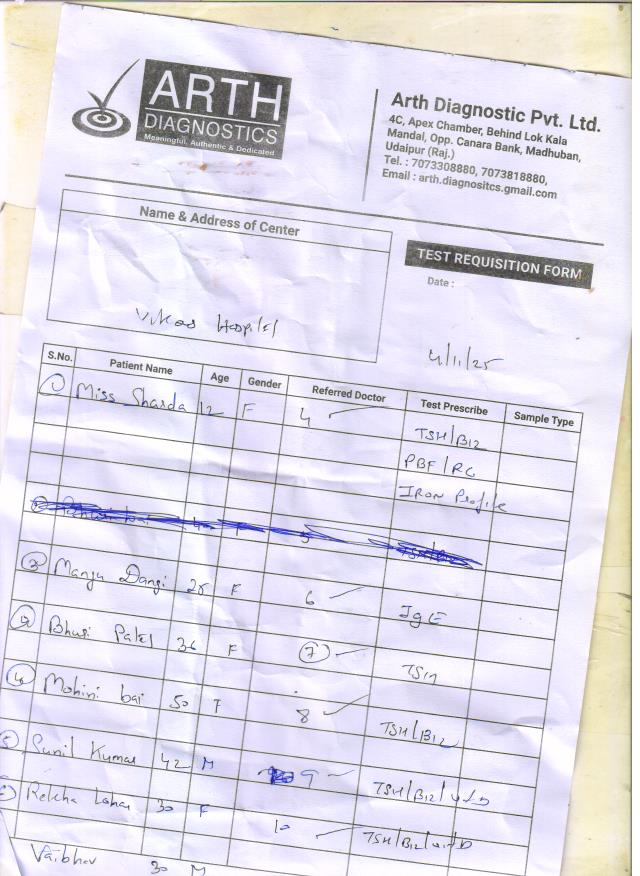 ARTH
DIAGNOSTICS
Meaningful, Authentic & Dedicated
Arth Diagnostic Pvt. Ltd.
4C, Apex Chamber, Behind Lok Kala
Mandal, Opp. Canara Bank, Madhuban,
Udaipur (Raj.)
Tel. : 7073308880, 7073818880,
Email : arth.diagnositcs.gmail.com
Name & Address of Center
Vikas Hospital
TEST REQUISITION FORM
Date :
4/11/25
S.No. Patient Name Age Gender Referred Doctor Test Prescribe Sample Type
1 Miss Sharda 12 F 4 TSH/B12
PBF/RC
IRON Profile
bai 5
Manju Dangi 28 F 6 IgE
Bhuri Patel 36 F 7 TSH
Mohini bai 50 F 8 TSH/B12
5 Sunil Kumar 42 M 9 TSH/B12/vitD
Rekha Lohar 30 F 10 TSH/B12/vitD
Vaibhav 30 M